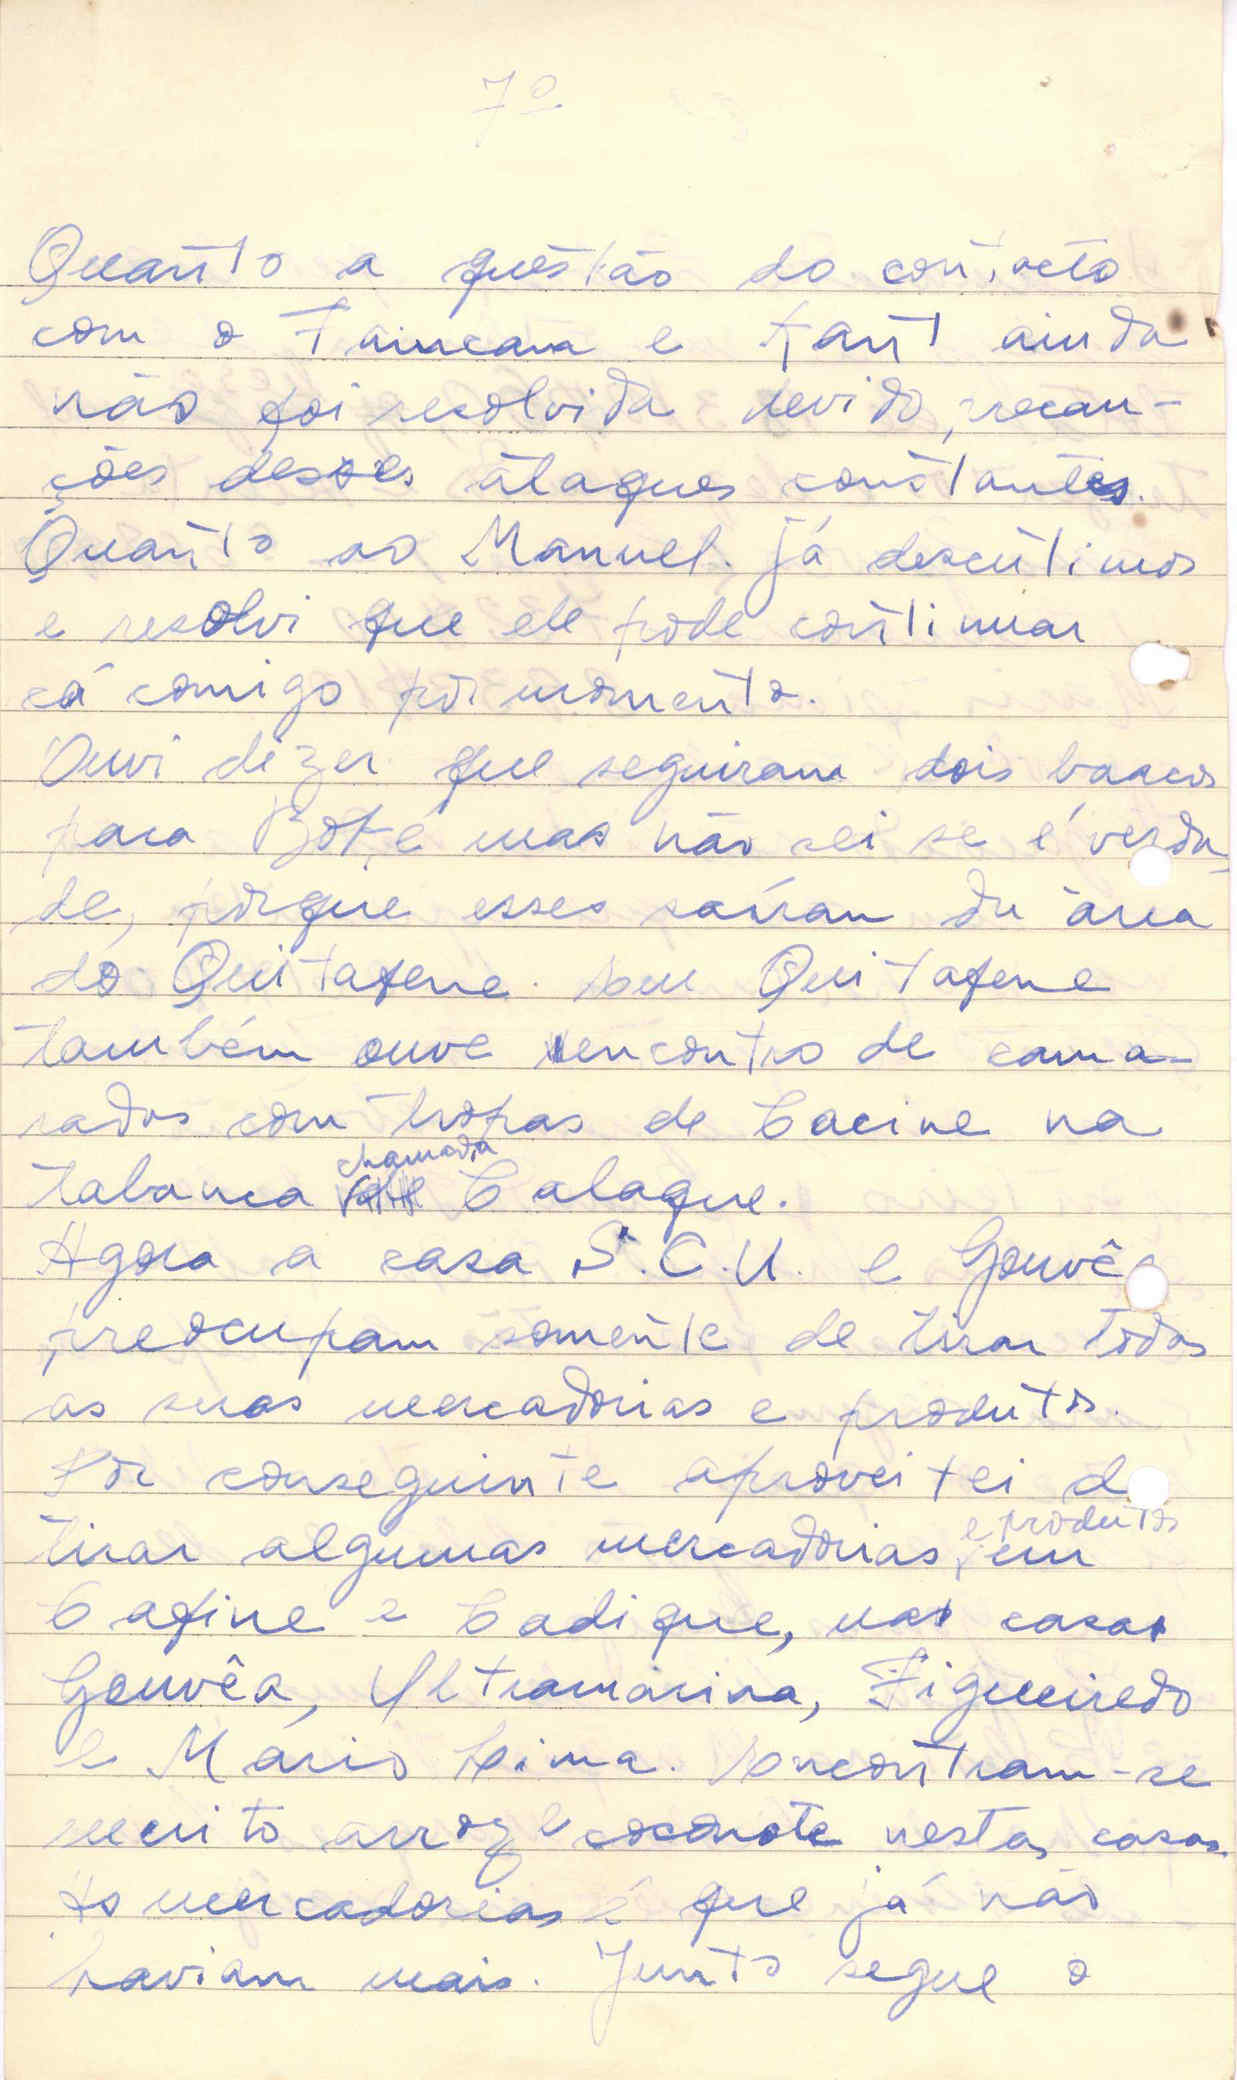 7º
Quanto a questão do contacto
com o Faincam e Fant ainda
não foi resolvida devido, precau-
ções desses ataques constantes.
Quanto ao Manuel. já descutimos
e resolvi que ele pode continuar
cá comigo por momento.
Ouvi dizer que seguiram dois barcos
para Boké mas não sei se é verda-
de, porque esses saíram da àrea
do Quitafene. Em Quitafene
também ouve encontro de cama-
radas com tropas de Cacine na
chamada
tabanca Calaque.
Agora a casa S.C.U. e Gouvêa
preocupam somente de tirar todas
as suas mercadorias e produtos.
Por conseguinte aproveitei d
e produtos
tirar algumas mercadorias, em
Cafine e Cadique, nas casas
Gouvêa, Ultramarina, Figueiredo
e Mario Lima. Encontram-se
muito arroz e coconote nestas casas.
As mercadorias é que já não
haviam mais. Junto segue o